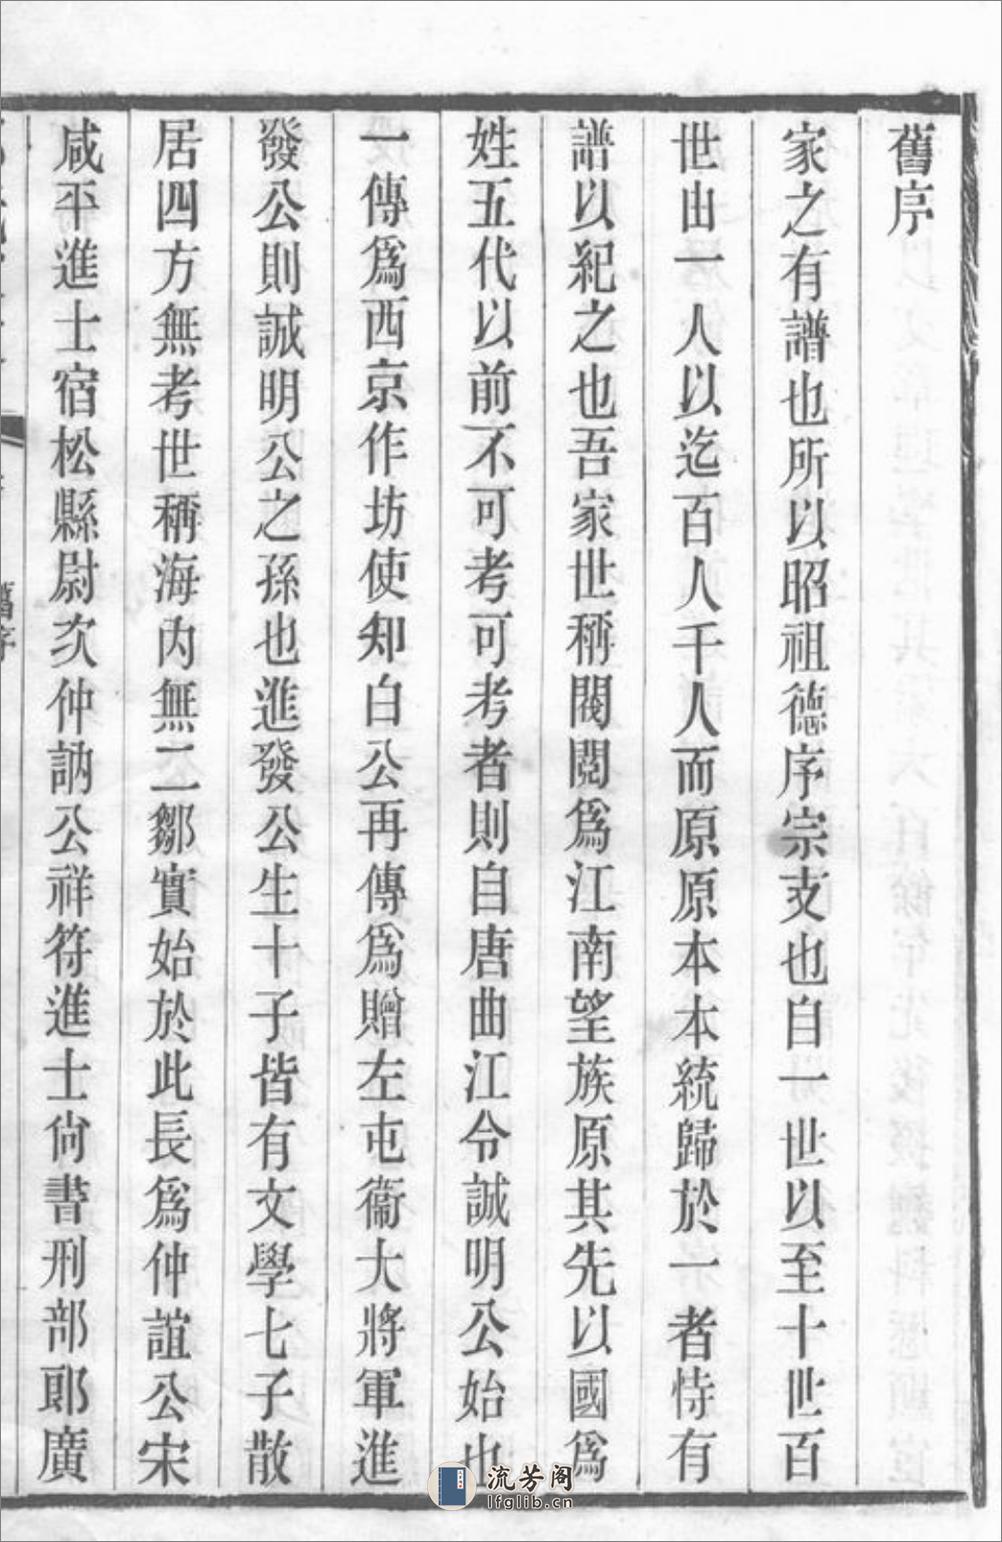 舊序
家之有譜也所以昭祖德序宗支也自一世以至十世百
世由一人以迄百人千人而原原本本統歸於一者恃有
譜以紀之也吾家世稱閥閱爲江南望族原其先以國爲
姓五代以前不可考可考者則自唐曲江令誠明公始也
一傳爲西京作坊使知白公再傳爲贈左屯衞大將軍進
發公則誠明公之孫也進發公生十子皆有文學七子散
居四方無考世稱海內無二鄒實始於此長爲仲誼公宋
咸平進士宿松縣尉次仲訥公祥符進士尙書刑部郎廣
舊序
流芳阁
lfglib.cn